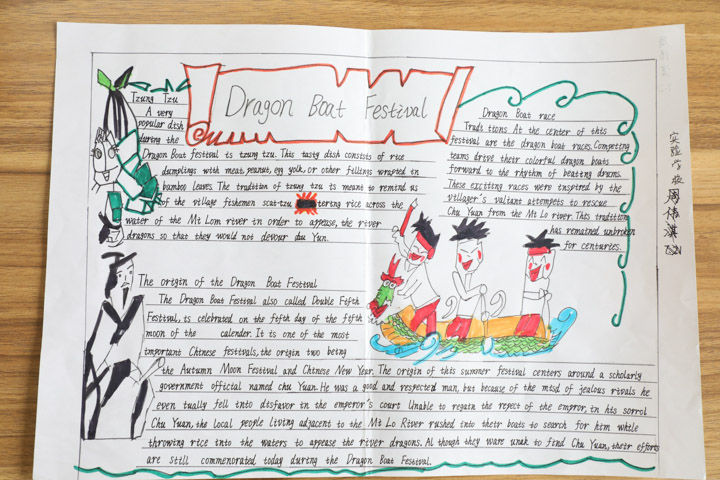 Dragon Boat Festival
Tzung Tzu
A very
popular dish
during the
Dragon Boat festival is tzung tzu. This tasty dish consists of rice
dumplings with meat, peanut, egg yolk, or other fillings wrapped in
bamboo leaves. The tradition of tzung tzu is meant to remind us
of the village fishemen scat tzu tering rice across the
water of the Mt Lom river in order to appease, the river
dragons so that they would not devour du Yun.
Dragon Boat race
Tradi tions At the center of this
festival are the dragon boat races. Competing
teams drive their colorful dragon boats
forward to the rhythm of beating drums.
These exciting races were inspired by the
villager's valiant attempts to rescue
Chu Yuan from the Mt Lo river. This tradition
has remained unbroken
for centuries.
The origin of the Dragon Boat Festival
The Dragon Boat Festival also called Double Fifth
Festival, is celebrated on the fifth day of the fifth
moon of the calender. It is one of the most
important Chinese festivals, the origin two being
the Autumn Moon Festival and Chinese New Year. The origin of this summer festival centers around a scholarly
government official named Chu Yuan. He was a good and respected man, but because of the misd of jealous rivals he
even tually fell into disfavor in the emperor's court Unable to regain the repect of the empror, in his sorrol
Chu Yuan, the local people living adjacent to the Mt Lo River rushed into their boats to search for him while
throwing rice into the waters to appease the river dragons. Al though they ware unak to find Chu Yuan, their efforts
are still commenorated today during the Dragon Boat Festival.
实验学校 周